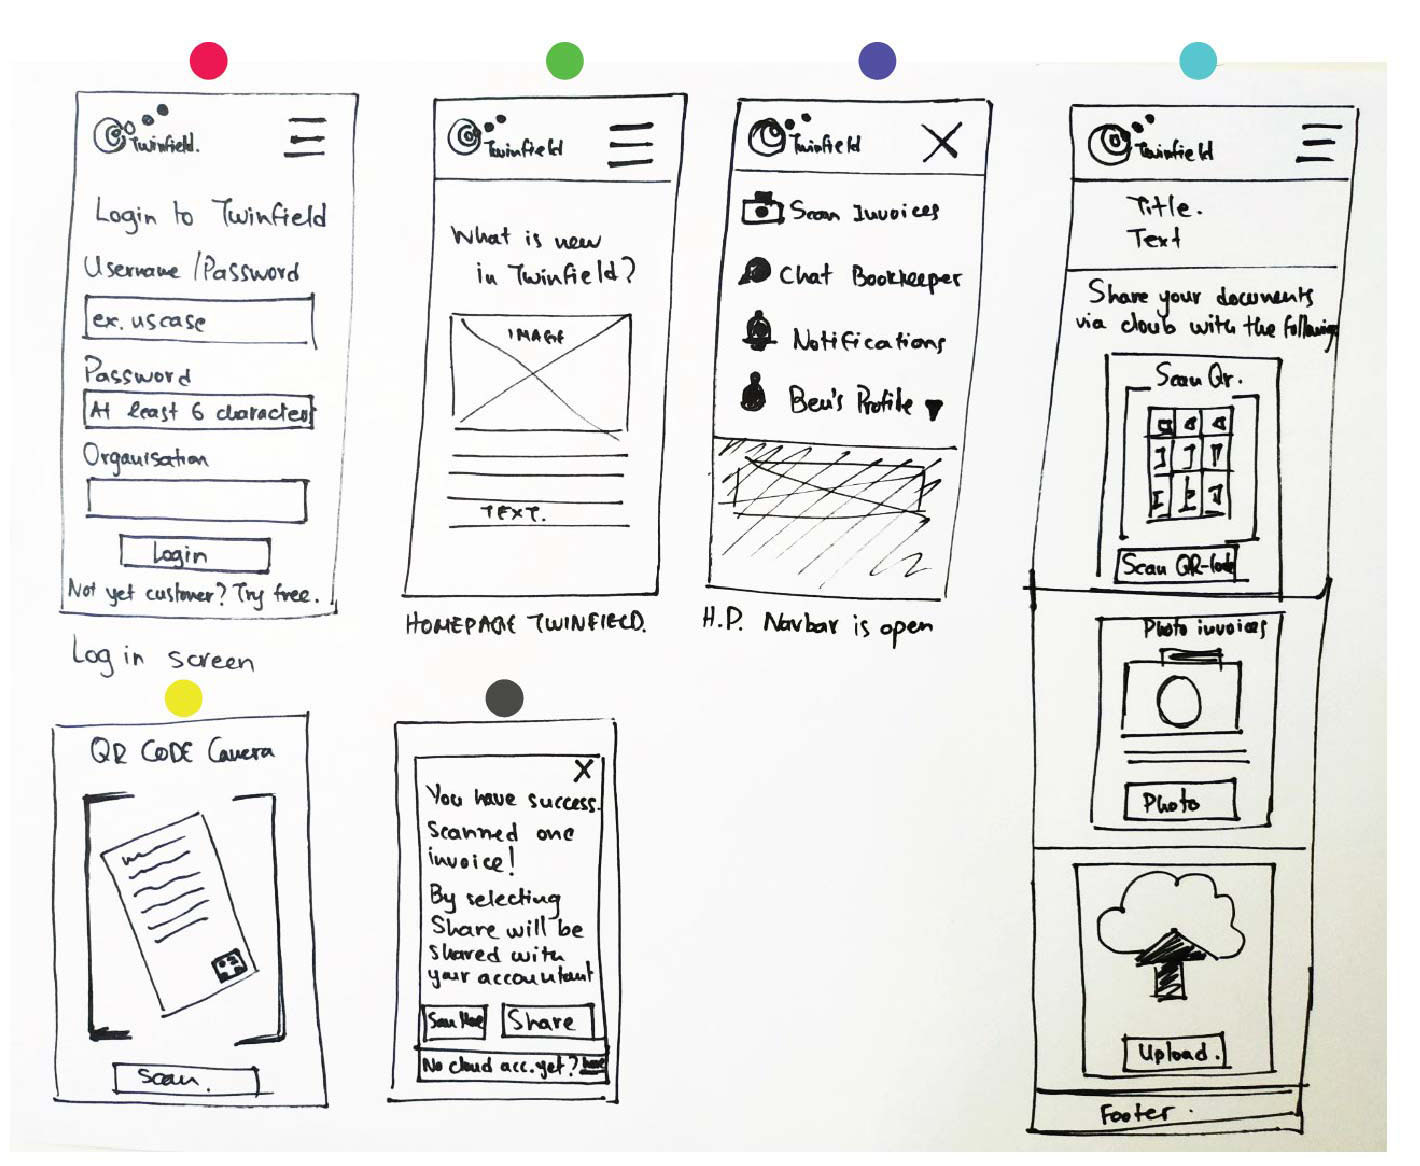 Twinfield.
Login to Twinfield
Username/Password
ex. uscase
Password
At least 6 characters
Organisation
Login
Not yet customer? Try free.
Log in screen
Twinfield
What is new
in Twinfield?
IMAGE
TEXT.
HOMEPAGE TWINFIELD.
Twinfield
Scan Invoices
Chat Bookkeeper
Notifications
Ben's Profile
H.P. Navbar is open
Twinfield
Title.
Text
Share your documents
via cloub with the following
Scan Qr.
Scan QR-Code
Photo invoices
Photo
Upload.
Footer.
QR CODE Camera
Scan.
X
You have success.
Scanned one
invoice!
By selecting
Share will be
shared with
your accountant
Scan More
Share
No cloud acc. yet?